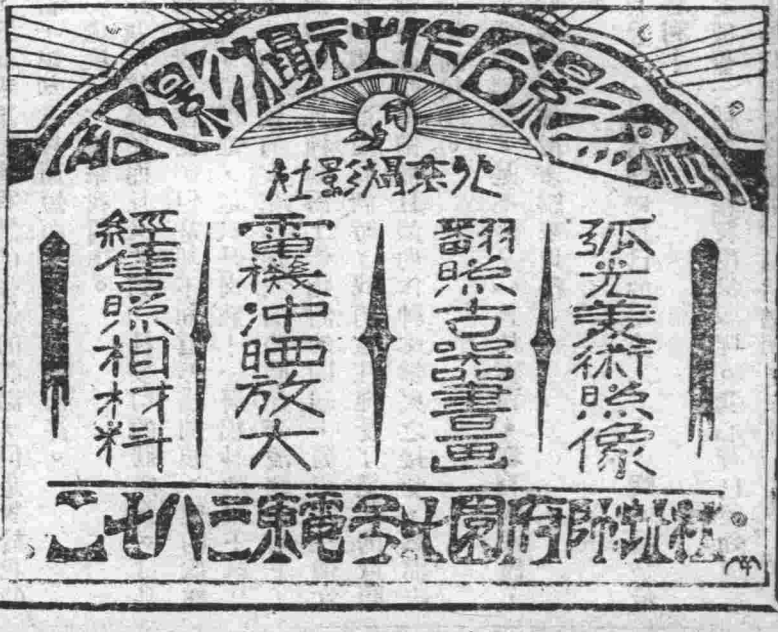 影合作社攝影部
北京攝影社
弧光美術照像
翻照古器書画
電機沖晒放大
經售照相材料
社址帥府園七号電東三八七二